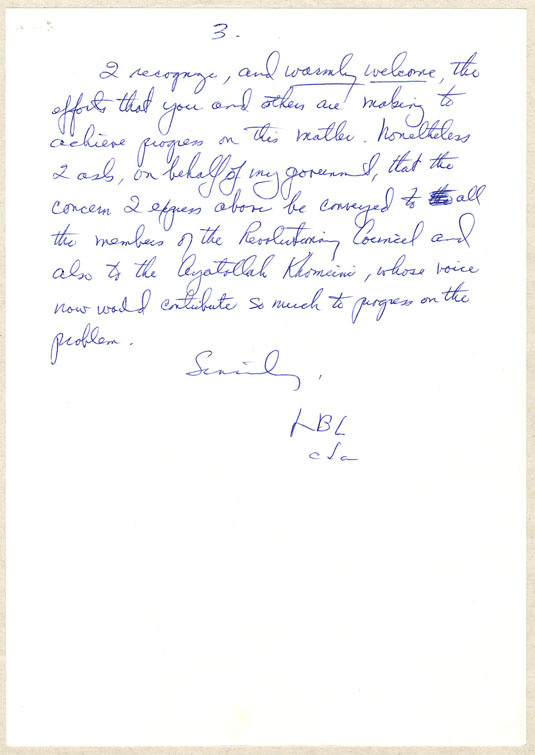 3.
I recognize, and warmly welcome, the
efforts that you and others are making to
achieve progress on this matter. Nonetheless
I ask, on behalf of my government, that the
concern I express above be conveyed to all
the members of the Revolutionary Council and
also to the Ayatollah Khomeini, whose voice
now would contribute so much to progress on the
problem.
Sincerely,
LBL